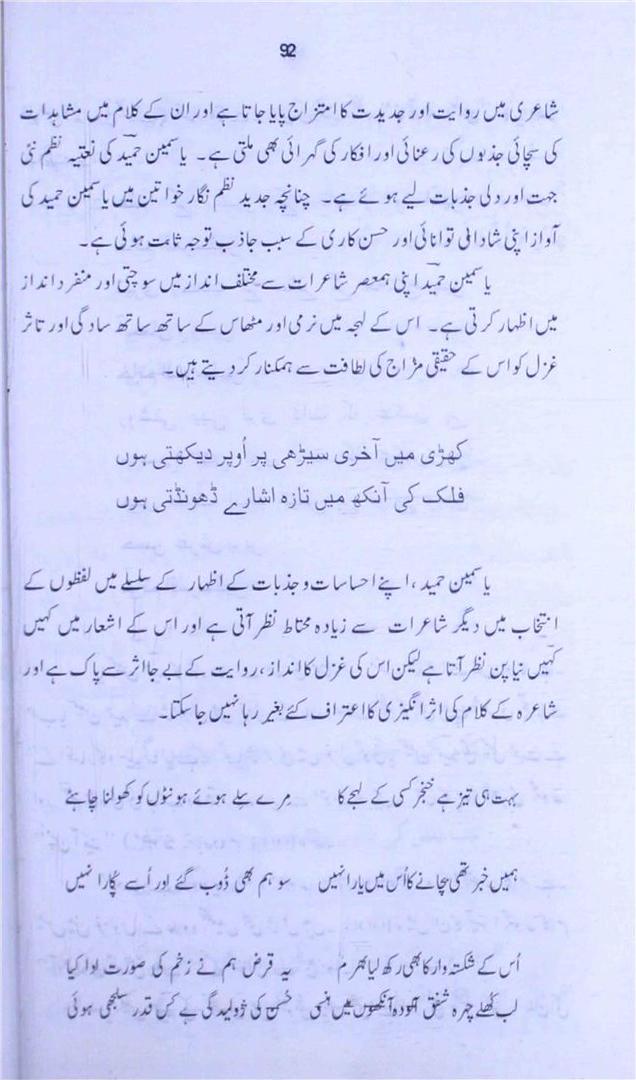 92
شاعری میں روایت اور جدیدت کا امتزاج پایا جاتا ہے اور ان کے کلام میں مشاہدات
کی سچائی جذبوں کی رعنائی اور افکار کی گہرائی بھی ملتی ہے۔ یاسمین حمید کی نعتیہ نظم نئی
جہت اور دلی جذبات لیے ہوئے ہے۔ چنانچہ جدید نظم نگار خواتین میں یاسمین حمید کی
آواز اپنی شادابی توانائی اور حسن کاری کے سبب جاذب توجہ ثابت ہوئی ہے۔
یاسمین حمید اپنی ہمعصر شاعرات سے مختلف انداز میں سوچتی اور منفرد انداز
میں اظہار کرتی ہے۔ اس کے لہجہ میں نرمی اور مٹھاس کے ساتھ ساتھ سادگی اور تاثر
غزل کو اس کے حقیقی مزاج کی لطافت سے ہمکنار کر دیتے ہیں۔
کھڑی میں آخری سیڑھی پر اُوپر دیکھتی ہوں
فلک کی آنکھ میں تازہ اشارے ڈھونڈتی ہوں
یاسمین حمید، اپنے احساسات و جذبات کے اظہار کے سلسلے میں لفظوں کے
انتخاب میں دیگر شاعرات سے زیادہ محتاط نظر آتی ہے اور اس کے اشعار میں کہیں
کہیں نیا پن نظر آتا ہے لیکن اس کی غزل کا انداز، روایت کے بے جا اثر سے پاک ہے اور
شاعرہ کے کلام کی اثر انگیزی کا اعتراف کئے بغیر رہا نہیں جا سکتا۔
بہت ہی تیز ہے خنجر کسی کے لہجے کا مِرے سِلے ہوئے ہونٹوں کو کھولنا چاہئے
ہمیں خبر تھی بچانے کا اُس میں یارا نہیں سو ہم بھی ڈوب گئے اور اُسے پُکارا نہیں
اُس کے شکستہ وار کا بھی رکھ لیا بھرم یہ قرض ہم نے زخم کی صورت ادا کیا
لب کھلے چہرہ شفق آلودہ آنکھوں میں ہنسی حسن کی ژولیدگی ہے کس قدر سلجھی ہوئی